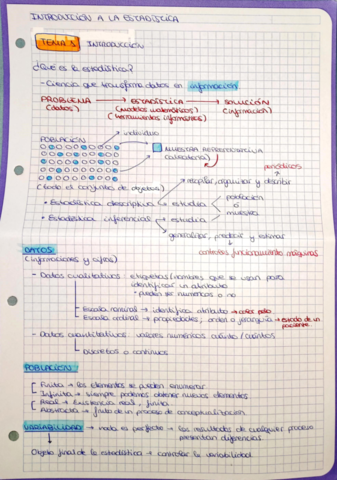 INTRODUCCIÓN A LA ESTADÍSTICA
TEMA 1 INTRODUCCIÓN
¿Qué es la estadística?
- Ciencia que transforma datos en información
PROBLEMA → ESTADÍSTICA → SOLUCIÓN
(datos) (modelos matemáticos) (información)
(herramientas informáticas)
individuo
POBLACIÓN
MUESTRA REPRESENTATIVA
(aleatoria)
periódicos
(todo el conjunto de objetos)
recopilar, organizar y describir
• Estadística descriptiva → estudia población
o
• Estadística inferencial → estudia muestra
generalizar, predecir y estimar
funcionamiento máquinas
DATOS
(informaciones y cifras)
- Datos cualitativos: etiquetas/nombres que se usan para
identificar un atributo
• pueden ser numéricos o no
Escala nominal → identifica atributo → color pelo
Escala ordinal → propiedades, orden o jerarquía → estado de un
paciente
- Datos cuantitativos: valores numéricos cuánto/cuántos
discretos o continuos
POBLACIÓN
Finita → los elementos se pueden enumerar
Infinita → siempre podemos obtener nuevos elementos
Real → existencia real, finita
Abstracta → fruto de un proceso de conceptualización
VARIABILIDAD → nada es perfecto → los resultados de cualquier proceso
presentan diferencias
Objeto final de la estadística → controlar la variabilidad